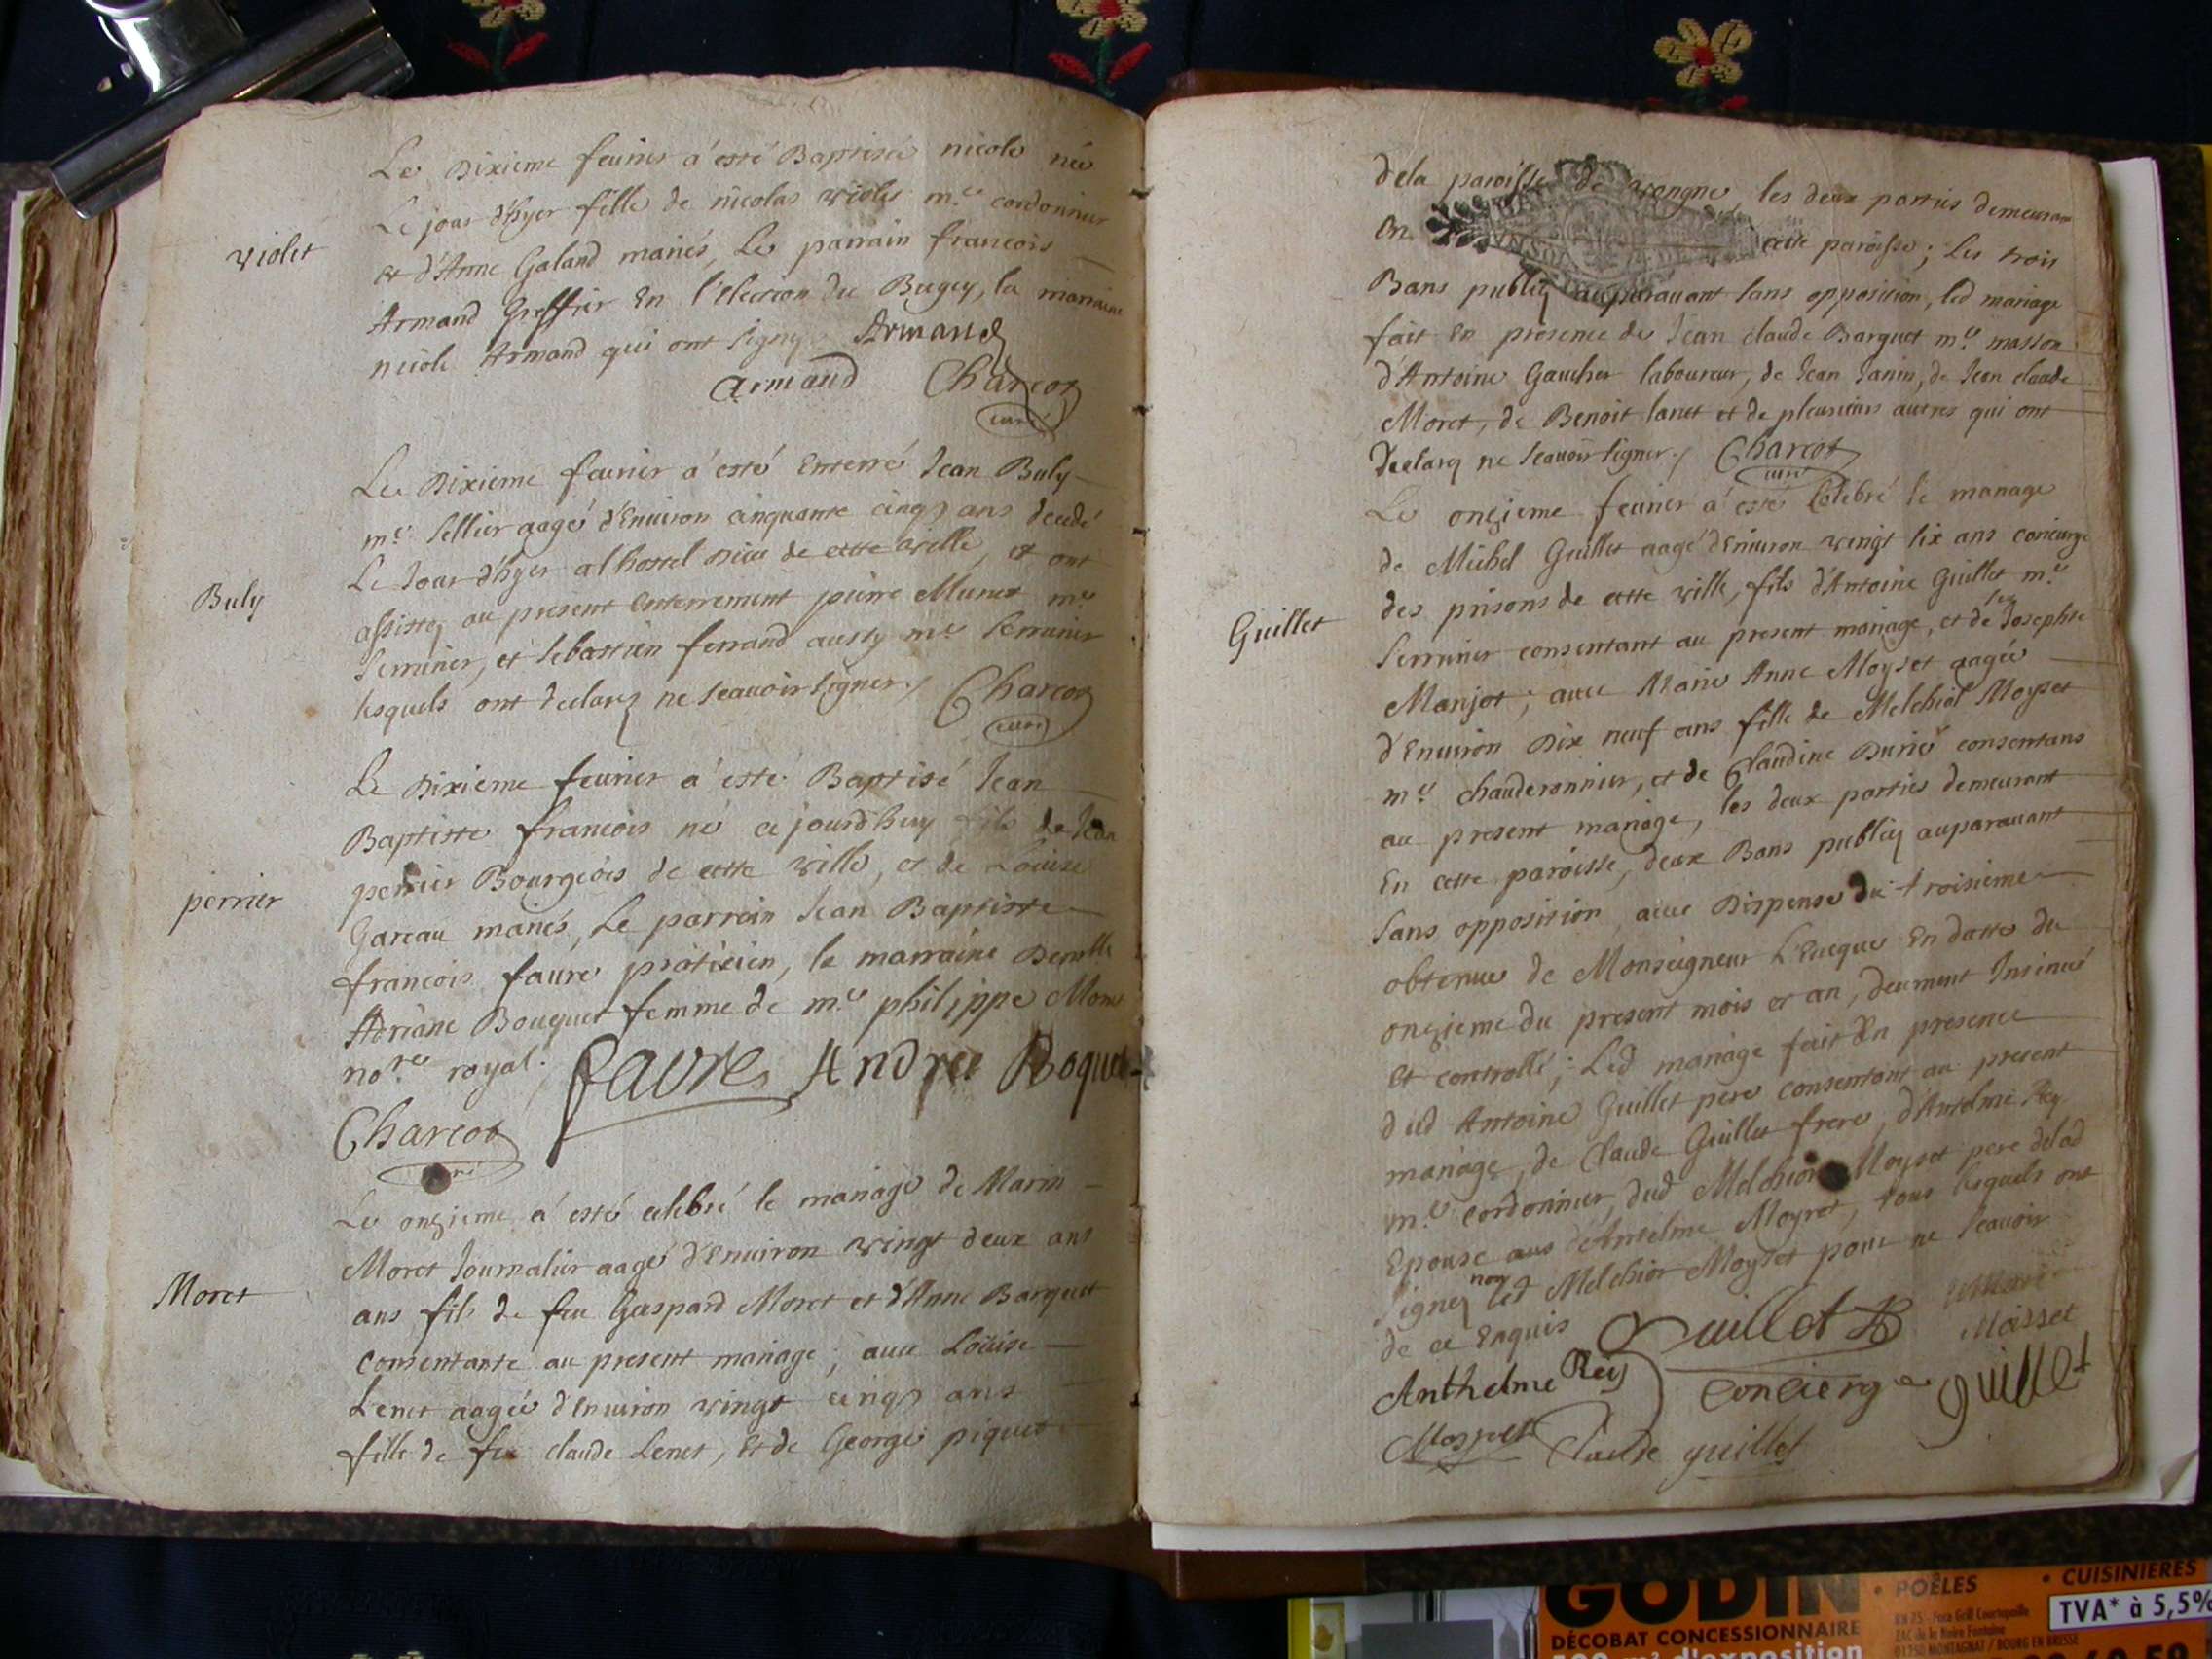 Le Dixieme feurier a esté Baptisée nicole née
Le jour d'hyer fille de nicolas violet m.e cordonnier
violet
et d'Anne Galand mariés, Le parrain francois
Armand Greffier En l'Election du Bugey, la marraine
nicole Armand qui ont signez Armand
armand Charcot
curé
Le Dixieme feurier a esté Enterré Jean Buly
m.e sellier aagé d'Enuiron cinquante cinq ans decedé
Le Jour d'hyer a l'hostel Dieu de cette ville, et ont
Buly
assistez au present enterrement pierre Munet m.e
serrurier, et sebastien ferrand aussy m.e serrurier
lesquels ont declarez ne sçauoir signer./ Charcot
curé
Le Dixieme feurier a esté Baptisé Jean
Baptiste francois né ce jourdhuy fils de Jean
perrier Bourgeois de cette ville, et de Louise
perrier
Gareau mariés, Le parrain Jean Baptiste
francois faure praticien, la marraine Demlle
Adriane Bouquet femme de m.e philippe
no.re royal. favre Andree Boquet
Charcot
curé
Le onzieme a esté celebré le mariage de Marin
Moret Journalier aagé d'Enuiron vingt deux ans
Moret
ans fils de feu Gaspard Moret et d'Anne Barquet
consentante au present mariage; auec Louise
Lenet aagée d'Enuiron vingt cinq ans
fille de feu claude Lenet, Et de George piquet
dela paroisse de les deux parties demeurant
En cette paroisse; Les trois
Bans publiez auparauant sans opposition, led mariage
fait En presence de Jean claude Barquet m.e masson
d'Antoine Gaucher laboureur, de Jean Janin, de Jean claude
Moret, de Benoit lanet et de plusieurs autres qui ont
Declarez ne sçauoir signer./ Charcot
curé
Le onzieme feurier a esté Celebré le mariage
de Michel Guillet aagé d'Enuiron vingt six ans concierge
des prisons de cette ville, fils d'Antoine Guillet m.e
Guillet
serrurier consentant au present mariage, et de feu Josephte
Manjot; auec Marie Anne Moyset aagée
d'Enuiron Dix neuf ans fille de Melchiol Moyset
m.e chauderonnier, et de Claudine Durié consentans
au present mariage, les deux parties demeurant
En cette paroisse, deux Bans publiez auparauant
sans opposition auec Dispense du troisieme
obtenue de Monseigneur L'Eueque En datte du
onzieme du present mois et an, deument Insinué
et controllé; Led mariage fait En presence
dud Antoine Guillet pere consentant au present
mariage, de Claude Guillet frere, d'Antelme Rey
m.e cordonnier, dud Melchior Moyset pere delad
Epouse d'Antelme Moyret, tous lesquels ont
signez non led Melchior Moyset pour ne sçauoir
de ce Enquis Guillet
Maisset
Anthelme Rey Concierge guillet
Claude guillet
GODIN
DÉCOBAT CONCESSIONNAIRE
500 m² d'exposition
• POÊLES
• CUISINIÈRES
TVA* à 5,5%
ZAC de la Noire Fontaine
01250 MONTAGNAT / BOURG EN BRESSE